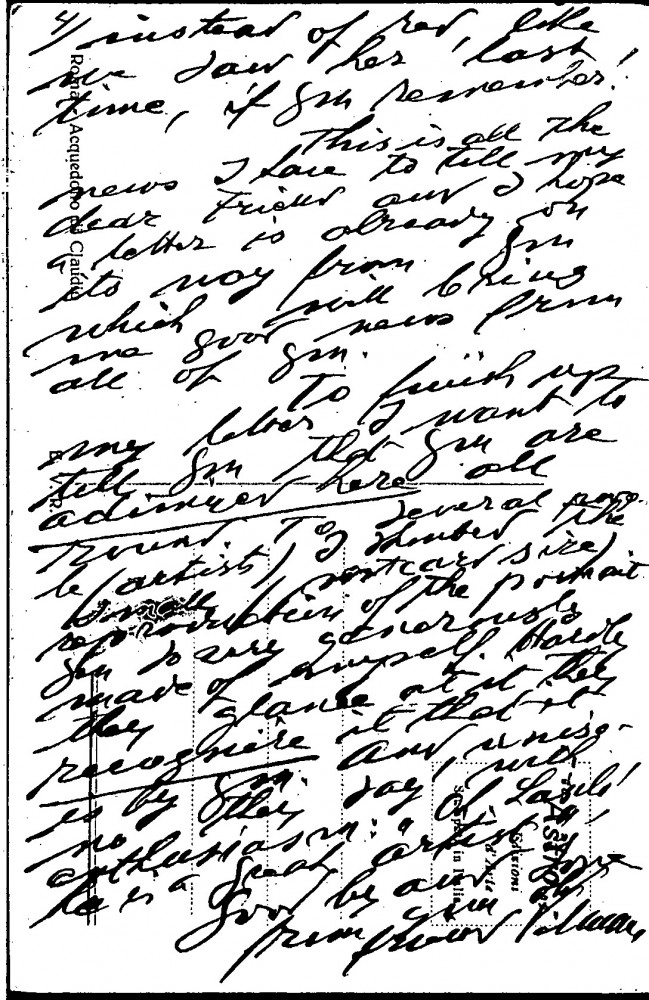 4) instead of red, like
we saw her last
time, if you remember!
This is all the
news I have to tell my
dear friend and I hope
a letter is already on
its way from you
which will bring
me good news from
all of you.
To finish up
my letter I want to
tell you that you are
admired here all
round. To several peop-
le (artists) I showed the
small (postcard size)
reproduction of the portrait
you so very generously
made of myself. Hardly
they glance at it they
recognise it that it
is by you. And, unisono
they say, with
enthusiasm: "
he is a great artist
Good bye and love
from your
Roma - Acquedotto di Claudio
E. V. R.